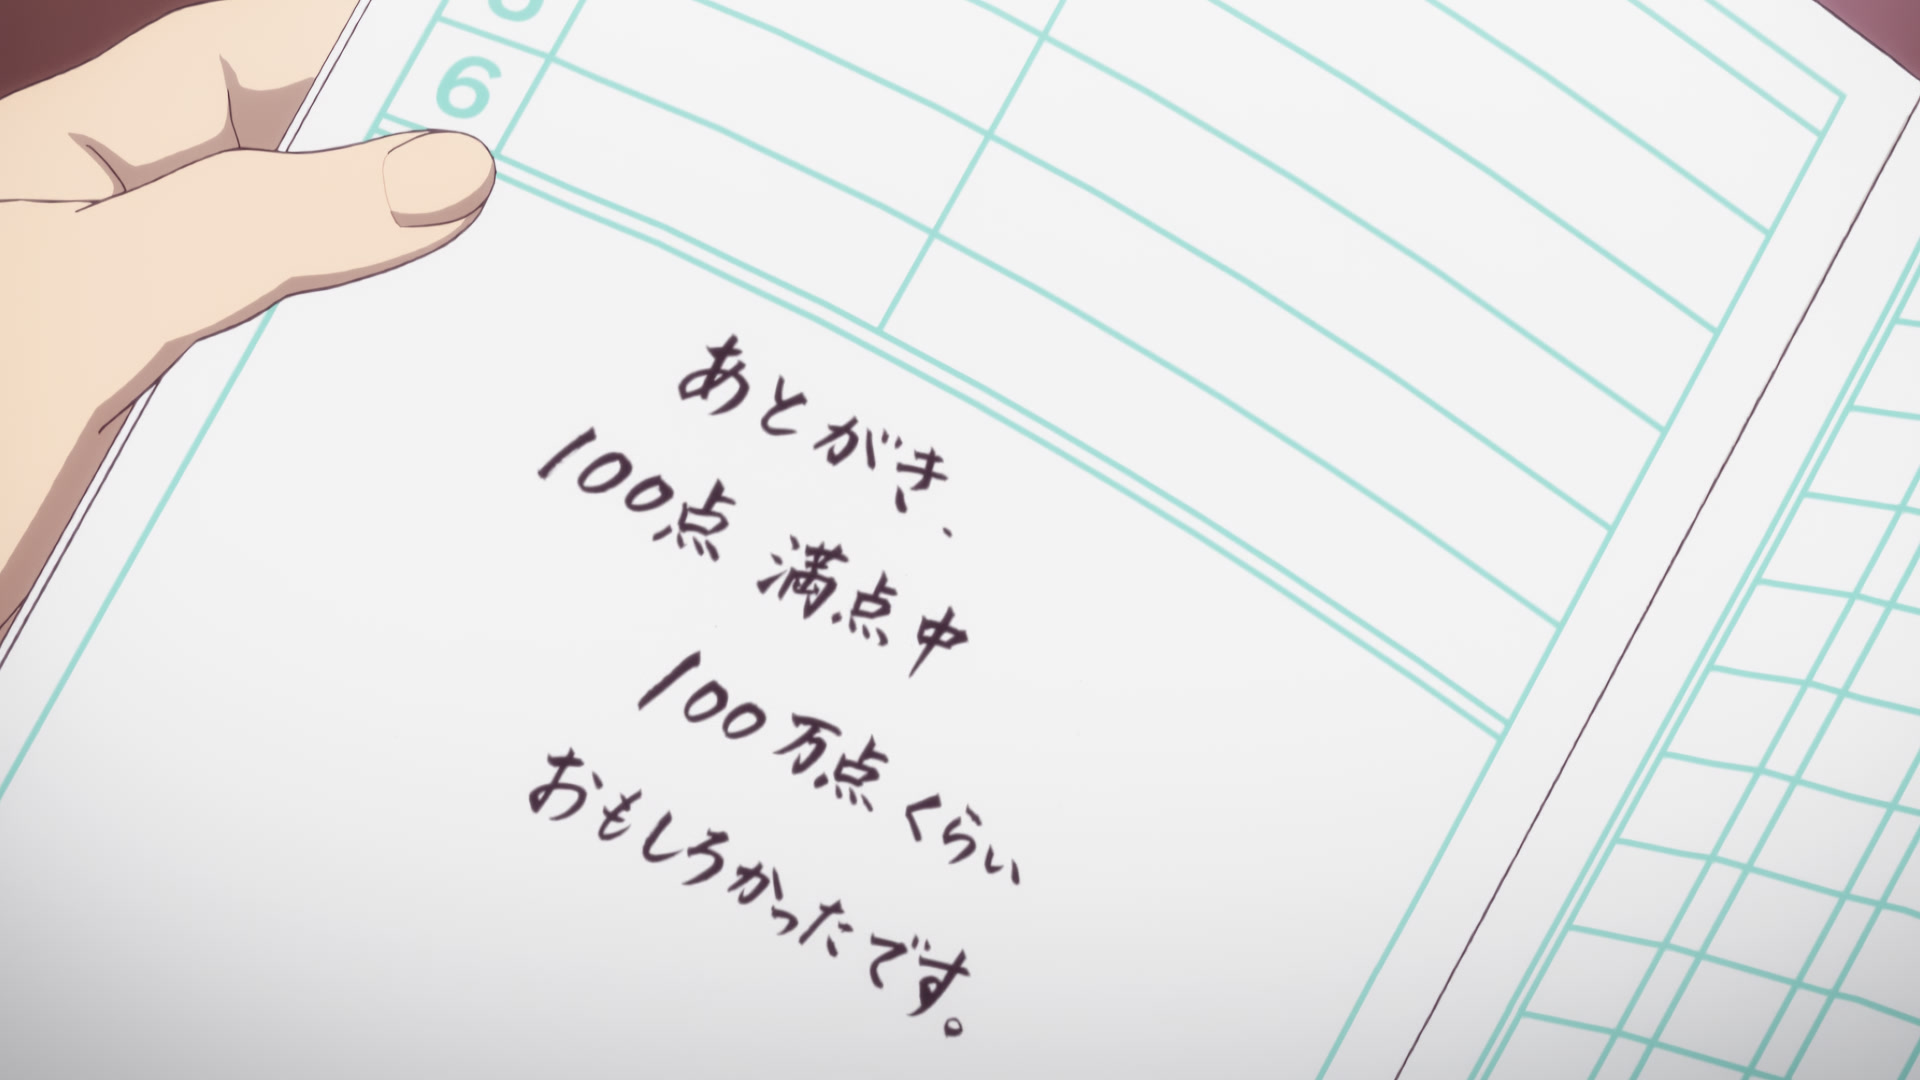 6
あとがき、
100点 満点中
100万点くらい
おもしろかったです。